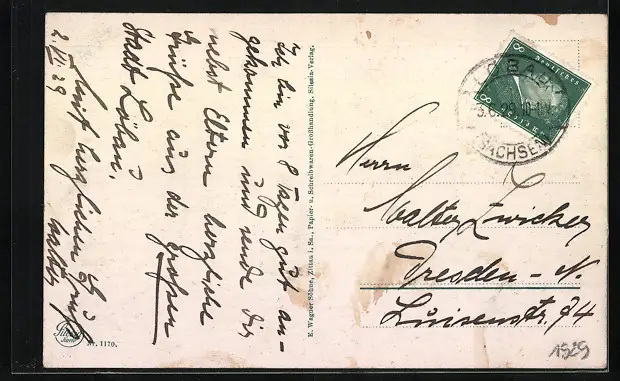 Ich bin vor 8 Tagen gut an-
gekommen und sende Dir
nebst Eltern herzliche
Grüße aus der großen
Stadt Löbau.
2.VI.29
Mit herzlichen Gruß
Walter
E. Wagner Söhne, Zittau i. Sa., Papier- u. Schreibwaren-Großhandlung, Silesia-Verlag.
Nr. 1170.
8 Deutsches
8
LÖBAU
3.6.29.10-11V.
SACHSEN
Herrn
Walter Zwicker
Dresden-N.
Luisenstr. 74
1929